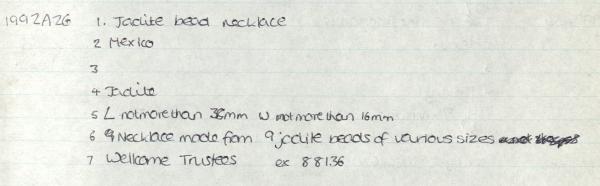 1992A26 1. Jadite bead necklace
2 Mexico
3
4 Jadite
5 L not more than 38mm W not more than 16mm
6 Necklace made from 9 jadite beads of various sizes
7 Wellcome Trustees ex 88136